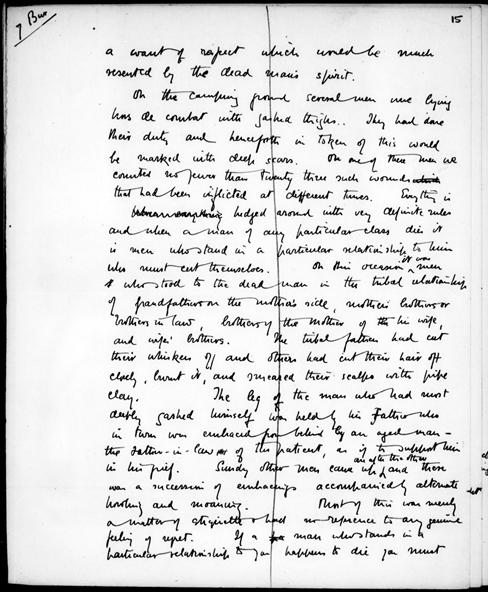 7 Bar
15
a want of respect which would be much
resented by the dead man's spirit.
On the camping ground several men were lying
hors de combat with gashed thighs. They had done
their duty and henceforth in token of this would
be marked with deep scars. On one of these men we
counted no fewer than twenty three such wounds
that had been inflicted at different times. Everything is
hedged around with very definite rules
and when a man of any particular class dies it
is men who stand in a particular relationship to him
who must cut themselves. On this occasion it was men
who stood to the dead man in the tribal relationship
of grandfather on the mother's side, mother's brothers or
brothers in law, brothers of the mother of his wife,
and wife's brothers. The tribal fathers had cut
their whiskers off and others had cut their hair off
closely, burnt it, and smeared their scalps with pipe
clay. The leg of the man who had most
deeply gashed himself was held by his Father who
in turn was embraced from behind by an aged man -
the Father-in-law of the patient, as if to support him
in his grief. Sundry other men came up one after the other and there
was a succession of embracings accompanied by alternate
howling and moaning. Most of this was merely
a matter of etiquette & had no reference to any genuine
feeling of regret. If a man who stands in a
particular relationship to you happens to die you must